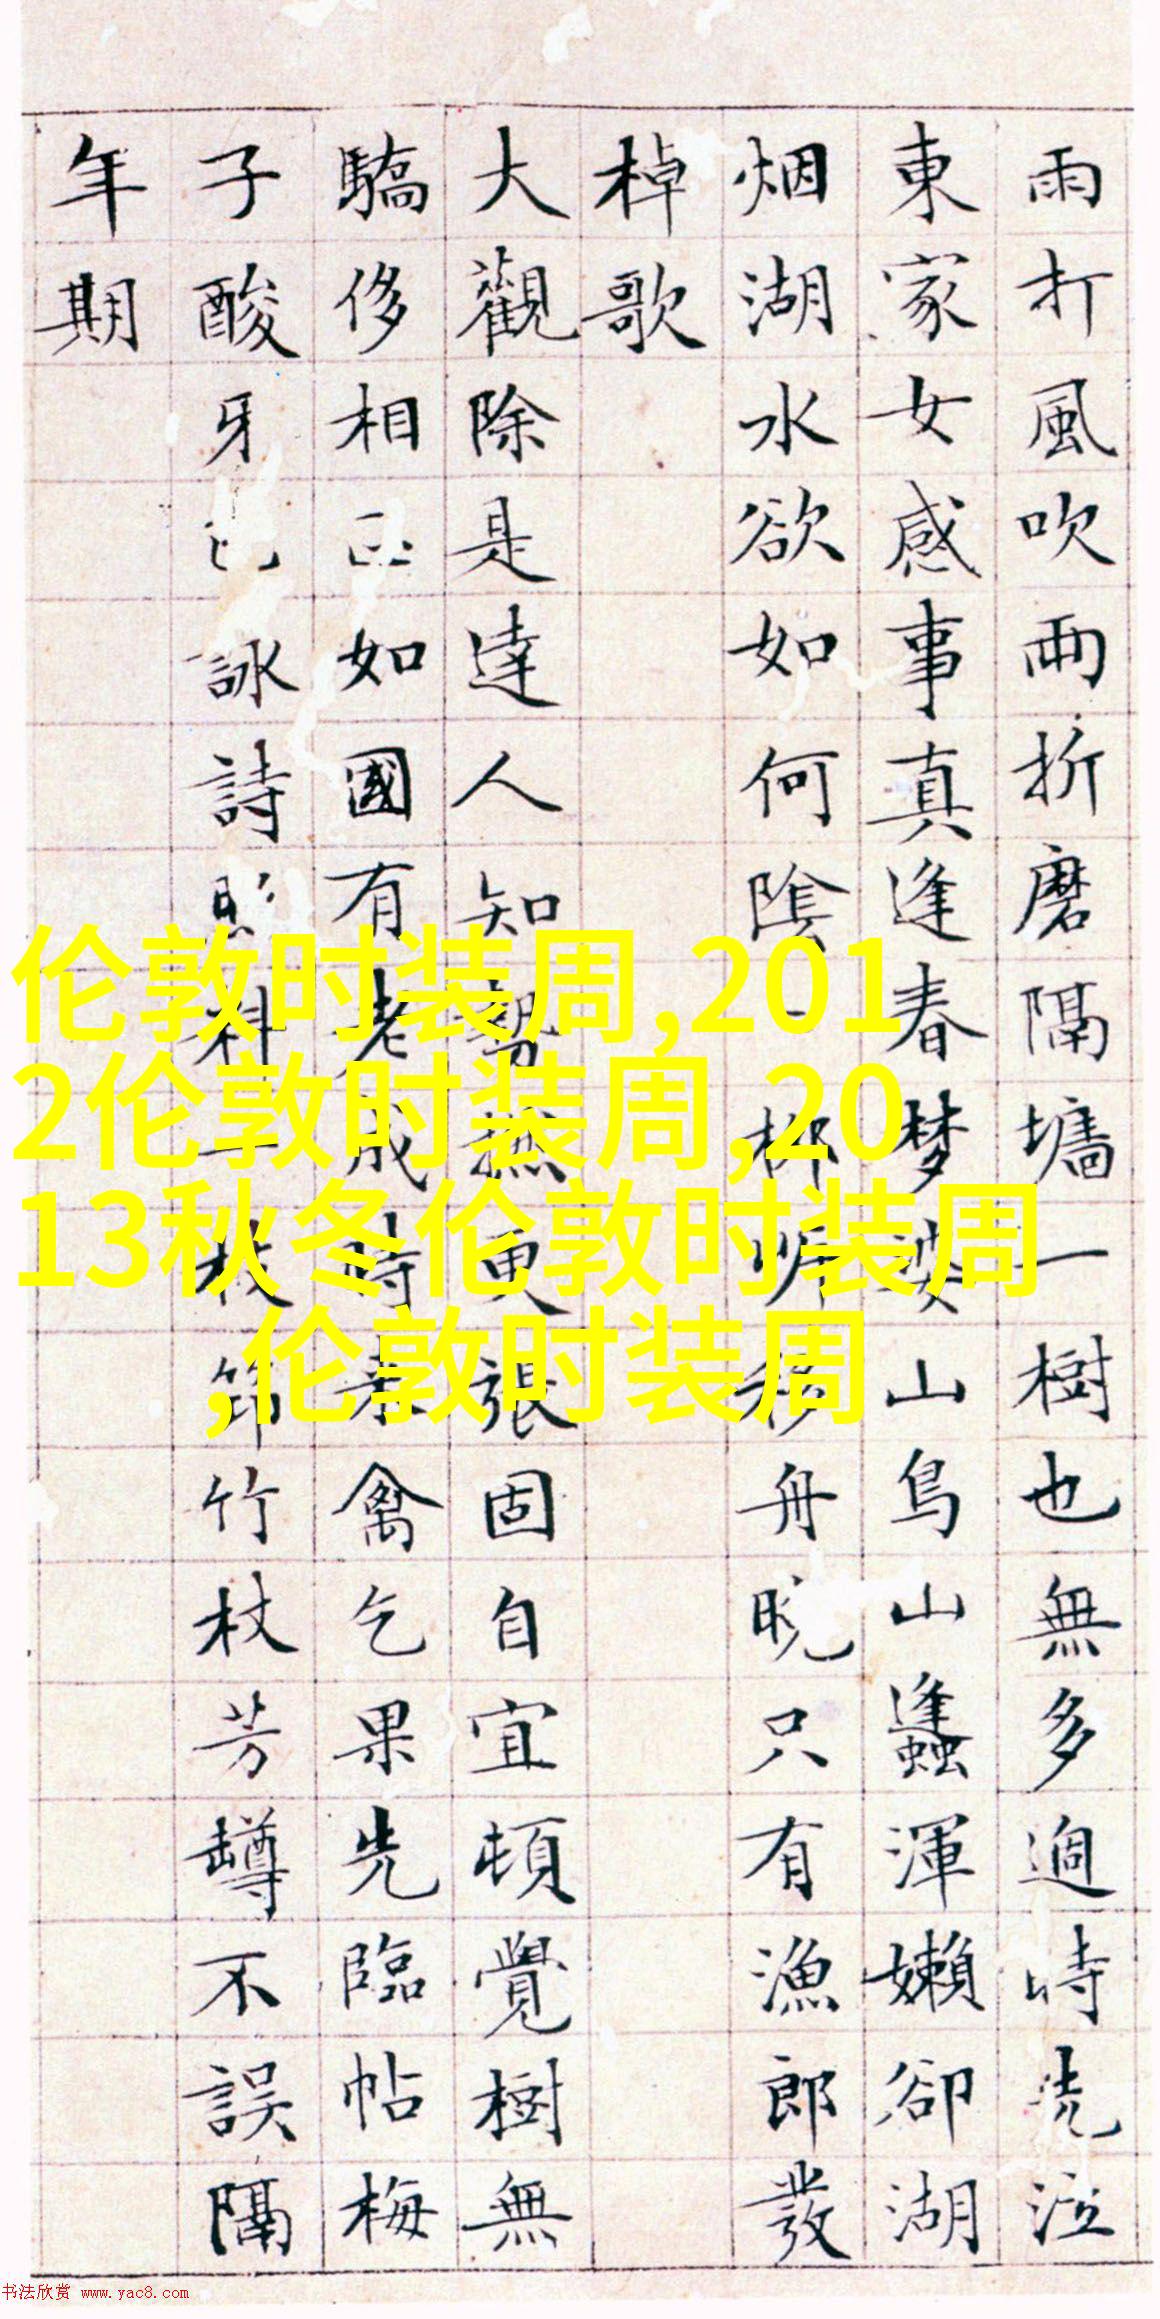 雨打風吹雨折磨隔墻一樹也無多過時洗泣
東家女感事真逢春梦婆山鳥山蠭渾嬾卻湖
烟湖水欲如何陰柳岸移舟晚只有漁郎發
棹歌
大觀除是達人知勢撫更張固自宜頓覺樹無
驕侈相如國有老成時亲禽乞果先臨帖梅
子酸牙詠詩料一枝笻竹杖芳罇不誤隔
年期
伦敦时装周,201
2伦敦时装周,20
13秋冬伦敦时装周
,伦敦时装周
书法欣赏 www.yac8.com